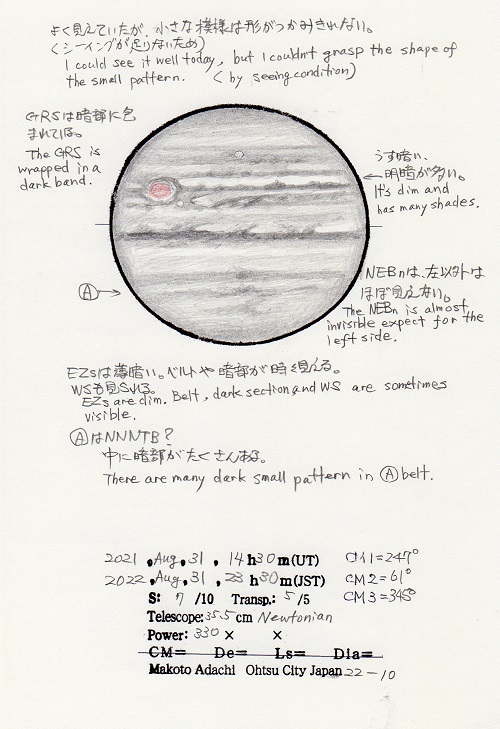 よく見えていたが、小さな模様は形がつかみきれない。
(シーイングが足りないため)
I could see it well today, but I couldn't grasp the shape of
the small pattern. (by seeing condition)
GRSは暗部に包
まれている。
The GRS is
wrapped in a
dark band.
うす暗い、
明暗が多い。
It's dim and
has many shades.
A
NEBnは、左以外は
ほぼ見えない。
The NEBn is almost
invisible expect for the
left side.
EZsは薄暗い。ベルトや暗部が時々見える。
WSも見られる。
EZs are dim. Belt, dark section and WS are sometimes
visible.
ⒶはNNNTB?
中に暗部がたくさんある。
There are many dark small pattern in Ⓐ belt.
2021, Aug, 31, 14h30m(UT) CM1=247°
2022, Aug, 31, 23h30m(JST) CM2=61°
S: 7/10 Transp.: 5/5 CM3=345°
Telescope: 35.5cm Newtonian
Power: 330× ×
CM= De= Ls= Dia=
Makoto Adachi Ohtsu City Japan 22-10